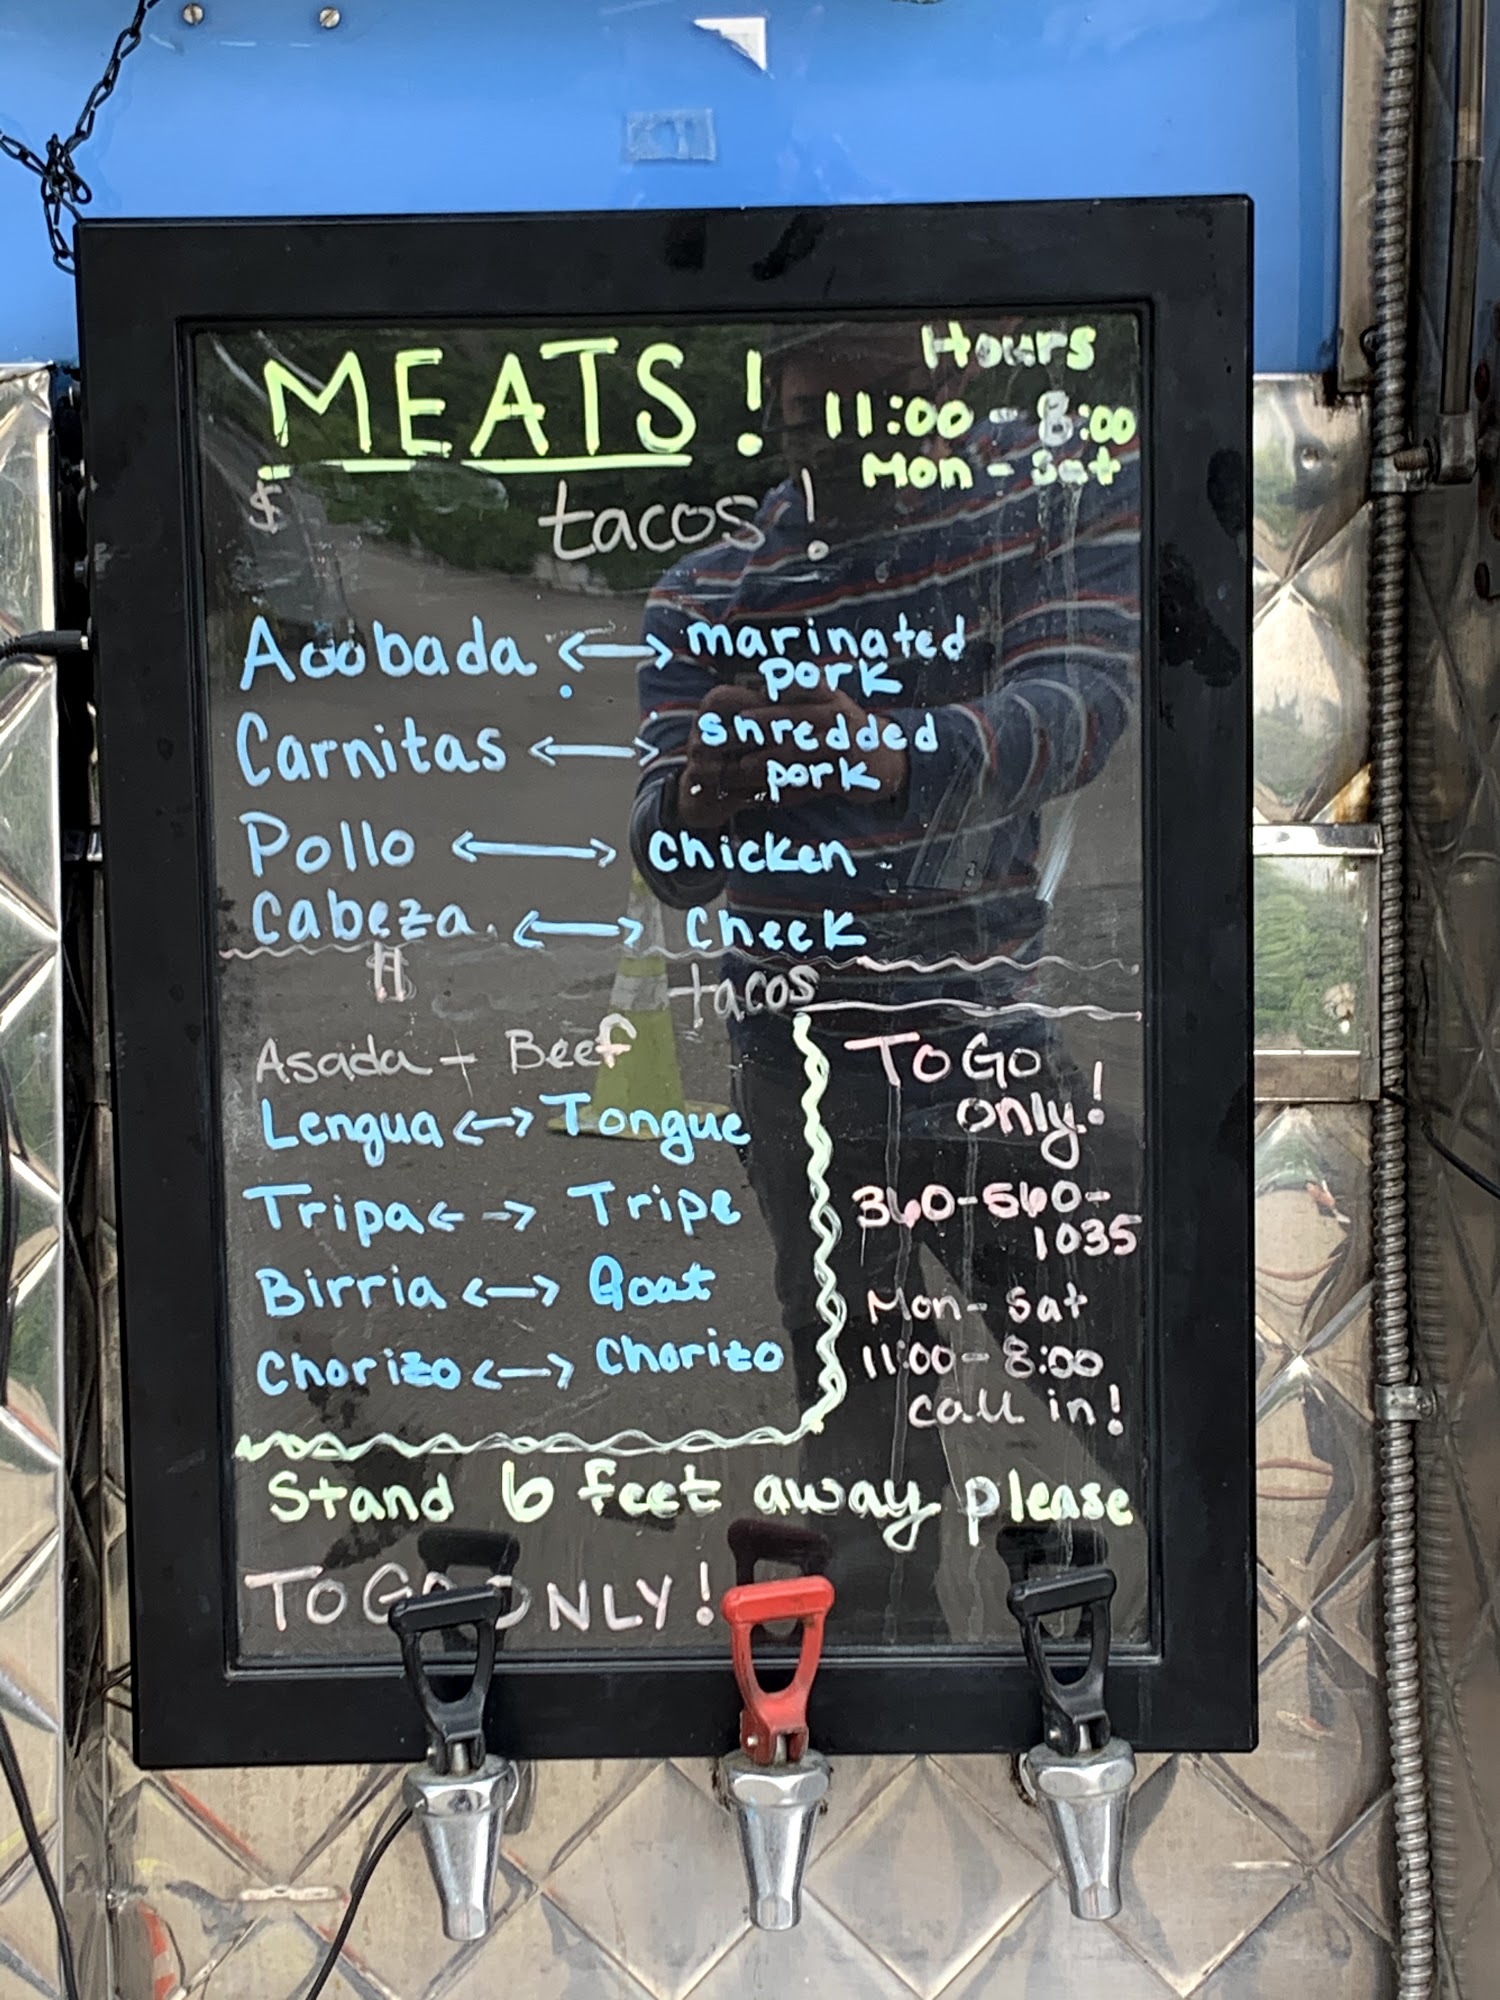 MEATS!
Hours
11:00 - 8:00
Mon - Sat
$ tacos!
Adobada <--> marinated
pork
Carnitas <--> shredded
pork
Pollo <--> chicken
Cabeza. <--> cheek
tacos
Asada + Beef
Lengua <--> Tongue
Tripa <--> Tripe
Birria <--> Goat
Chorizo <--> Chorizo
TO GO
only!
360-560-
1035
Mon - Sat
11:00 - 8:00
call in!
Stand 6 feet away please
TO GO ONLY!